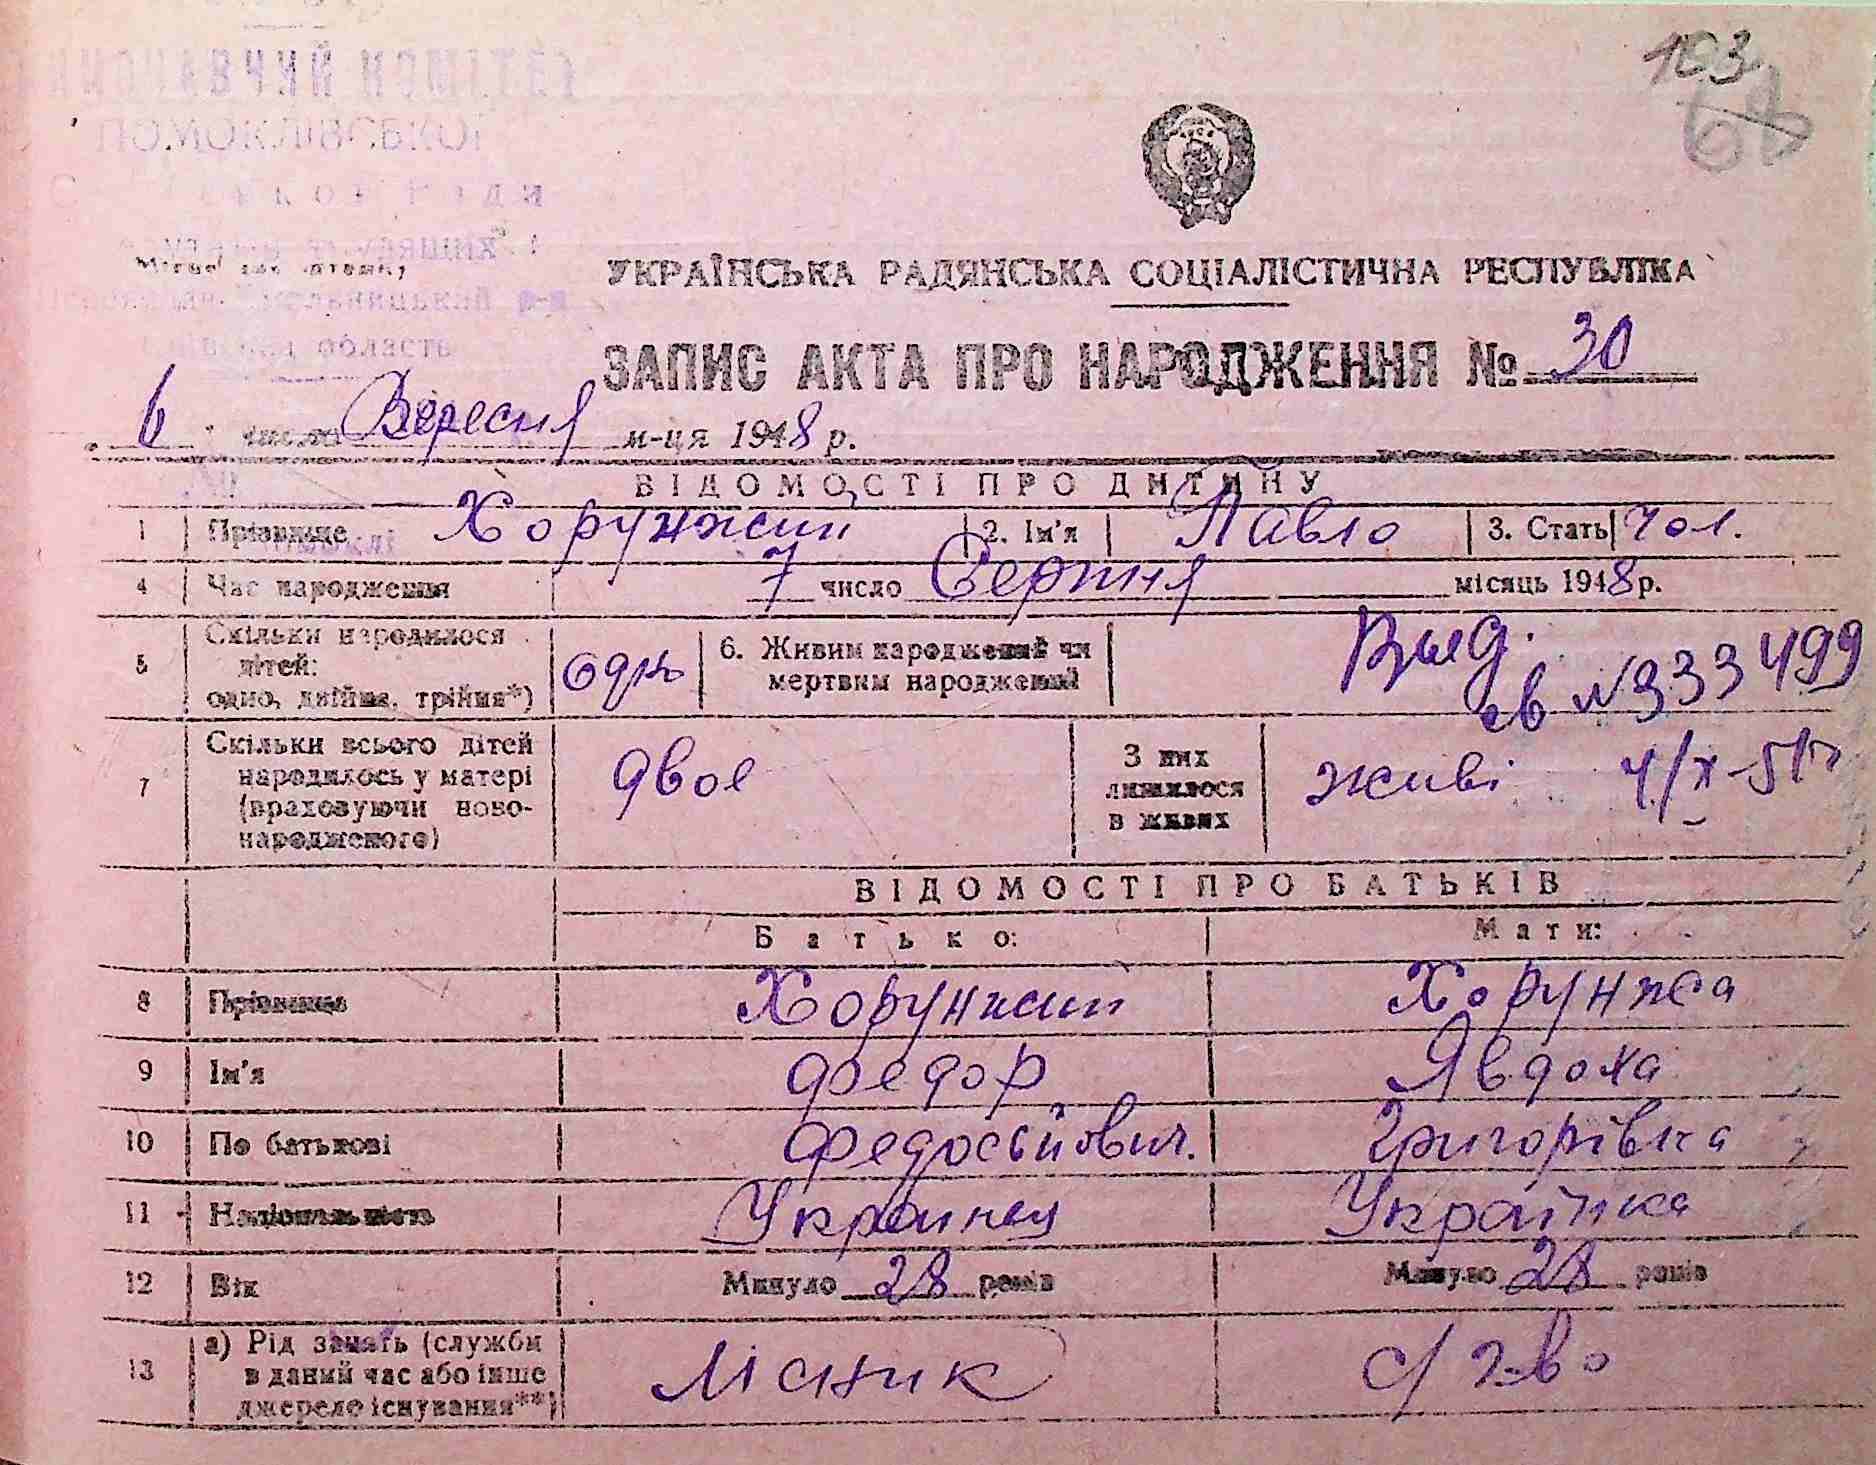 103
УКРАЇНСЬКА РАДЯНСЬКА СОЦІАЛІСТИЧНА РЕСПУБЛІКА
ЗАПИС АКТА ПРО НАРОДЖЕННЯ № 30
"6" число Вересня м-ця 1948 р.
ВІДОМОСТІ ПРО ДИТИНУ
1 Прізвище Хорунжий 2. Ім'я Павло 3. Стать чол.
4 Час народження 7 число Серпня місяць 1948 р.
5 Скільки народилося дітей: одно, двійня, трійня*) одн 6. Живим народжений чи мертвим народжений
Выд. св №333499
7 Скільки всього дітей народилось у матері (враховуючи ново-народженого) двое З них лишилося в живих живі 4/X-51г
ВІДОМОСТІ ПРО БАТЬКІВ
Батько: Мати:
8 Прізвище Хорунжий Хорунжа
9 Ім'я Федор Явдоха
10 По батькові Федосьйович. Григорівна
11 Національність Украинец Українка
12 Вік Минуло 28 років Минуло 28 років
13 а) Рід занять (служби в даний час або інше джерело існування**) Лісник с/г-во